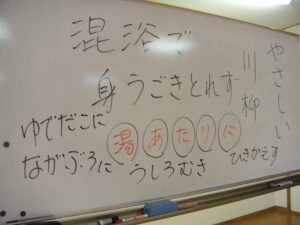 やさしい
川柳
混浴で
身うごきとれず
湯あたりに
ゆでだこに
ながぶろに
うしろむき
ひきかえす